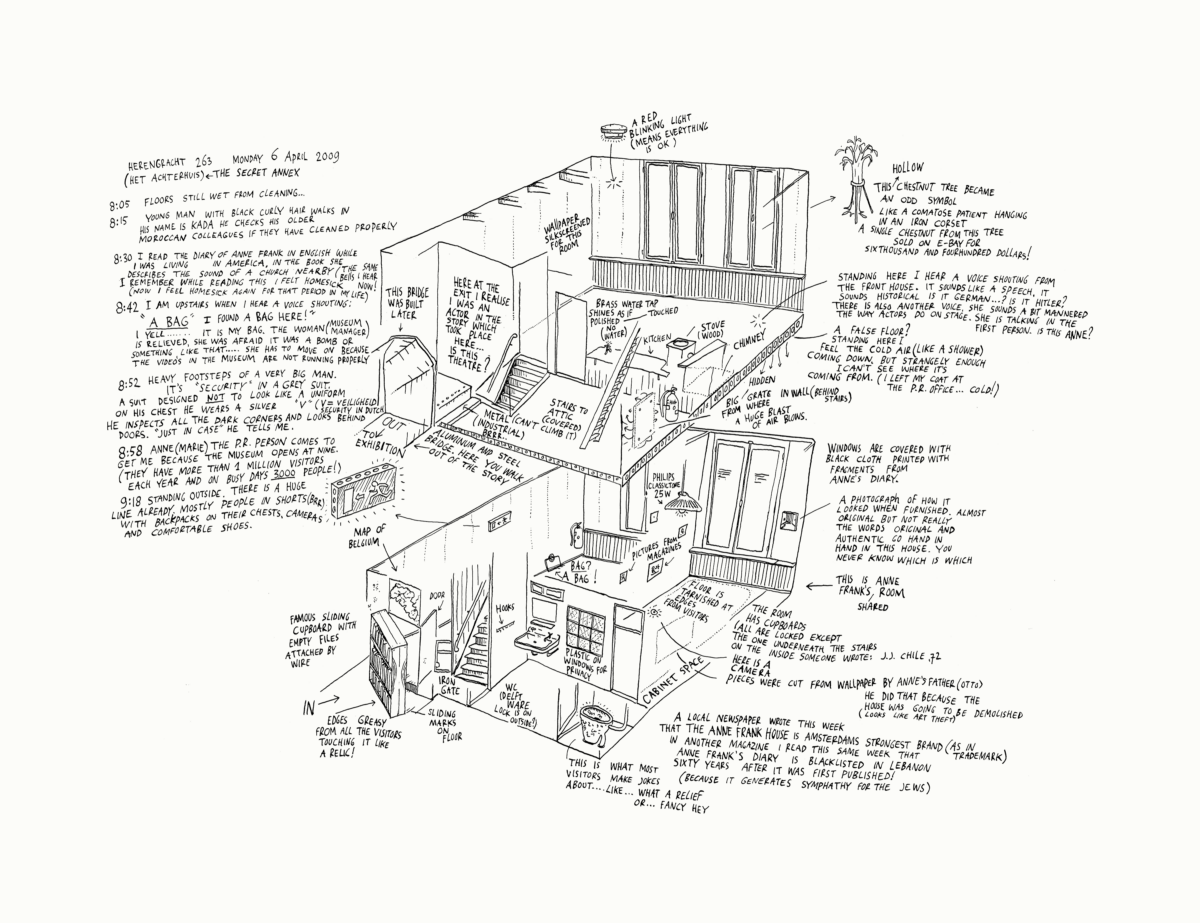 HERENGRACHT 263 MONDAY 6 APRIL 2009
(HET ACHTERHUIS)←THE SECRET ANNEX
8:05 FLOORS STILL WET FROM CLEANING...
8:15 YOUNG MAN WITH BLACK CURLY HAIR WALKS IN
HIS NAME IS KADA HE CHECKS HIS OLDER
MOROCCAN COLLEAGUES IF THEY HAVE CLEANED PROPERLY
8:30 I READ THE DIARY OF ANNE FRANK IN ENGLISH WHILE
I WAS LIVING IN AMERICA, IN THE BOOK SHE
DESCRIBES THE SOUND OF A CHURCH NEARBY (THE SAME
BELLS I HEAR
I REMEMBER WHILE READING THIS I FELT HOMESICK NOW!
(NOW I FEEL HOMESICK AGAIN FOR THAT PERIOD IN MY LIFE)
8:42 I AM UPSTAIRS WHEN I HEAR A VOICE SHOUTING:
"A BAG" I FOUND A BAG HERE!"
I YELL....... IT IS MY BAG, THE WOMAN (MUSEUM
MANAGER)
IS RELIEVED, SHE WAS AFRAID IT WAS A BOMB OR
SOMETHING LIKE THAT..... SHE HAS TO MOVE ON BECAUSE
THE VIDEOS IN THE MUSEUM ARE NOT RUNNING PROPERLY
8:52 HEAVY FOOTSTEPS OF A VERY BIG MAN.
IT'S "SECURITY" IN A GREY SUIT.
A SUIT DESIGNED NOT TO LOOK LIKE A UNIFORM
ON HIS CHEST HE WEARS A SILVER "V" (V = VEILIGHEID
SECURITY IN DUTCH
HE INSPECTS ALL THE DARK CORNERS AND LOOKS BEHIND
DOORS. "JUST IN CASE" HE TELLS ME.
8:58 ANNE(MARIE) THE P.R. PERSON COMES TO
GET ME BECAUSE THE MUSEUM OPENS AT NINE.
(THEY HAVE MORE THAN 1 MILLION VISITORS
EACH YEAR AND ON BUSY DAYS 3000 PEOPLE!)
9:18 STANDING OUTSIDE. THERE IS A HUGE
LINE ALREADY, MOSTLY PEOPLE IN SHORTS (BRR)
WITH BACKPACKS ON THEIR CHESTS, CAMERAS
AND COMFORTABLE SHOES.
A RED
BLINKING LIGHT
(MEANS EVERYTHING
IS OK)
HOLLOW
THIS CHESTNUT TREE BECAME
AN ODD SYMBOL
LIKE A COMATOSE PATIENT HANGING
IN AN IRON CORSET
A SINGLE CHESTNUT FROM THIS TREE
SOLD ON E-BAY FOR
SIXTHOUSAND AND FOURHUNDRED DOLLARS!
WALLPAPER
SILKSCREENED
FOR THIS
ROOM
THIS BRIDGE
WAS BUILT
LATER
HERE AT THE
EXIT I REALISE
I WAS AN
ACTOR IN THE
STORY WHICH
TOOK PLACE
HERE...
IS THIS
THEATRE?
BRASS WATER TAP
SHINES AS IF TOUCHED
POLISHED
(NO
WATER)
KITCHEN
STOVE
(WOOD)
CHIMNEY
STANDING HERE I HEAR A VOICE SHOUTING FROM
THE FRONT HOUSE. IT SOUNDS LIKE A SPEECH, IT
SOUNDS HISTORICAL IS IT GERMAN...? IS IT HITLER?
THERE IS ALSO ANOTHER VOICE, SHE SOUNDS A BIT MANNERED
THE WAY ACTORS DO ON STAGE. SHE IS TALKING IN THE
FIRST PERSON. IS THIS ANNE?
A FALSE FLOOR?
STANDING HERE I
FEEL THE COLD AIR (LIKE A SHOWER)
COMING DOWN, BUT STRANGELY ENOUGH
I CAN'T SEE WHERE IT'S
COMING FROM. (I LEFT MY COAT AT
THE P.R. OFFICE... COLD!)
HIDDEN
BIG GRATE IN WALL (BEHIND
STAIRS)
FROM WHERE
A HUGE BLAST
OF AIR BLOWS.
STAIRS TO
ATTIC
(COVERED)
(CAN'T CLIMB IT)
METAL
(INDUSTRIAL)
BRRR...
ALUMINUM AND STEEL
BRIDGE, HERE YOU WALK
OUT OF THE STORY
OUT
TO
EXHIBITION
MAP OF
BELGIUM
PHILIPS
CLASSICTONE
25W
WINDOWS ARE COVERED WITH
BLACK CLOTH PRINTED WITH
FRAGMENTS FROM
ANNE'S DIARY.
A PHOTOGRAPH OF HOW IT
LOOKED WHEN FURNISHED. ALMOST
ORIGINAL BUT NOT REALLY
THE WORDS ORIGINAL AND
AUTHENTIC GO HAND IN
HAND IN THIS HOUSE. YOU
NEVER KNOW WHICH IS WHICH
THIS IS ANNE
FRANK'S, ROOM
SHARED
PICTURES FROM
MAGAZINES
BAG?
A BAG!
FLOOR IS
TARNISHED AT
EDGES
FROM VISITORS
THE ROOM
HAS CUPBOARDS
(ALL ARE LOCKED EXCEPT
THE ONE UNDERNEATH THE STAIRS
ON THE INSIDE SOMEONE WROTE: J.J. CHILE ,72
HERE IS A
CAMERA
PIECES WERE CUT FROM WALLPAPER BY ANNE'S FATHER (OTTO)
HE DID THAT BECAUSE THE
HOUSE WAS GOING TO BE DEMOLISHED
(LOOKS LIKE ART THEFT)
CABINET SPACE
PLASTIC ON
WINDOWS FOR
PRIVACY
DOOR
HOOKS
FAMOUS SLIDING
CUPBOARD WITH
EMPTY FILES
ATTACHED BY
WIRE
IRON
GATE
IN
EDGES GREASY
FROM ALL THE VISITORS
TOUCHING IT LIKE
A RELIC!
SLIDING
MARKS
ON
FLOOR
WC
(DELFT
WARE
LOCK IS ON
OUTSIDE?)
THIS IS WHAT MOST
VISITORS MAKE JOKES
ABOUT....LIKE... WHAT A RELIEF
OR... FANCY HEY
A LOCAL NEWSPAPER WROTE THIS WEEK
THAT THE ANNE FRANK HOUSE IS AMSTERDAMS STRONGEST BRAND (AS IN
TRADEMARK)
IN ANOTHER MAGAZINE I READ THIS SAME WEEK THAT
ANNE FRANK'S DIARY IS BLACKLISTED IN LEBANON
SIXTY YEARS AFTER IT WAS FIRST PUBLISHED!
(BECAUSE IT GENERATES SYMPHATHY FOR THE JEWS)